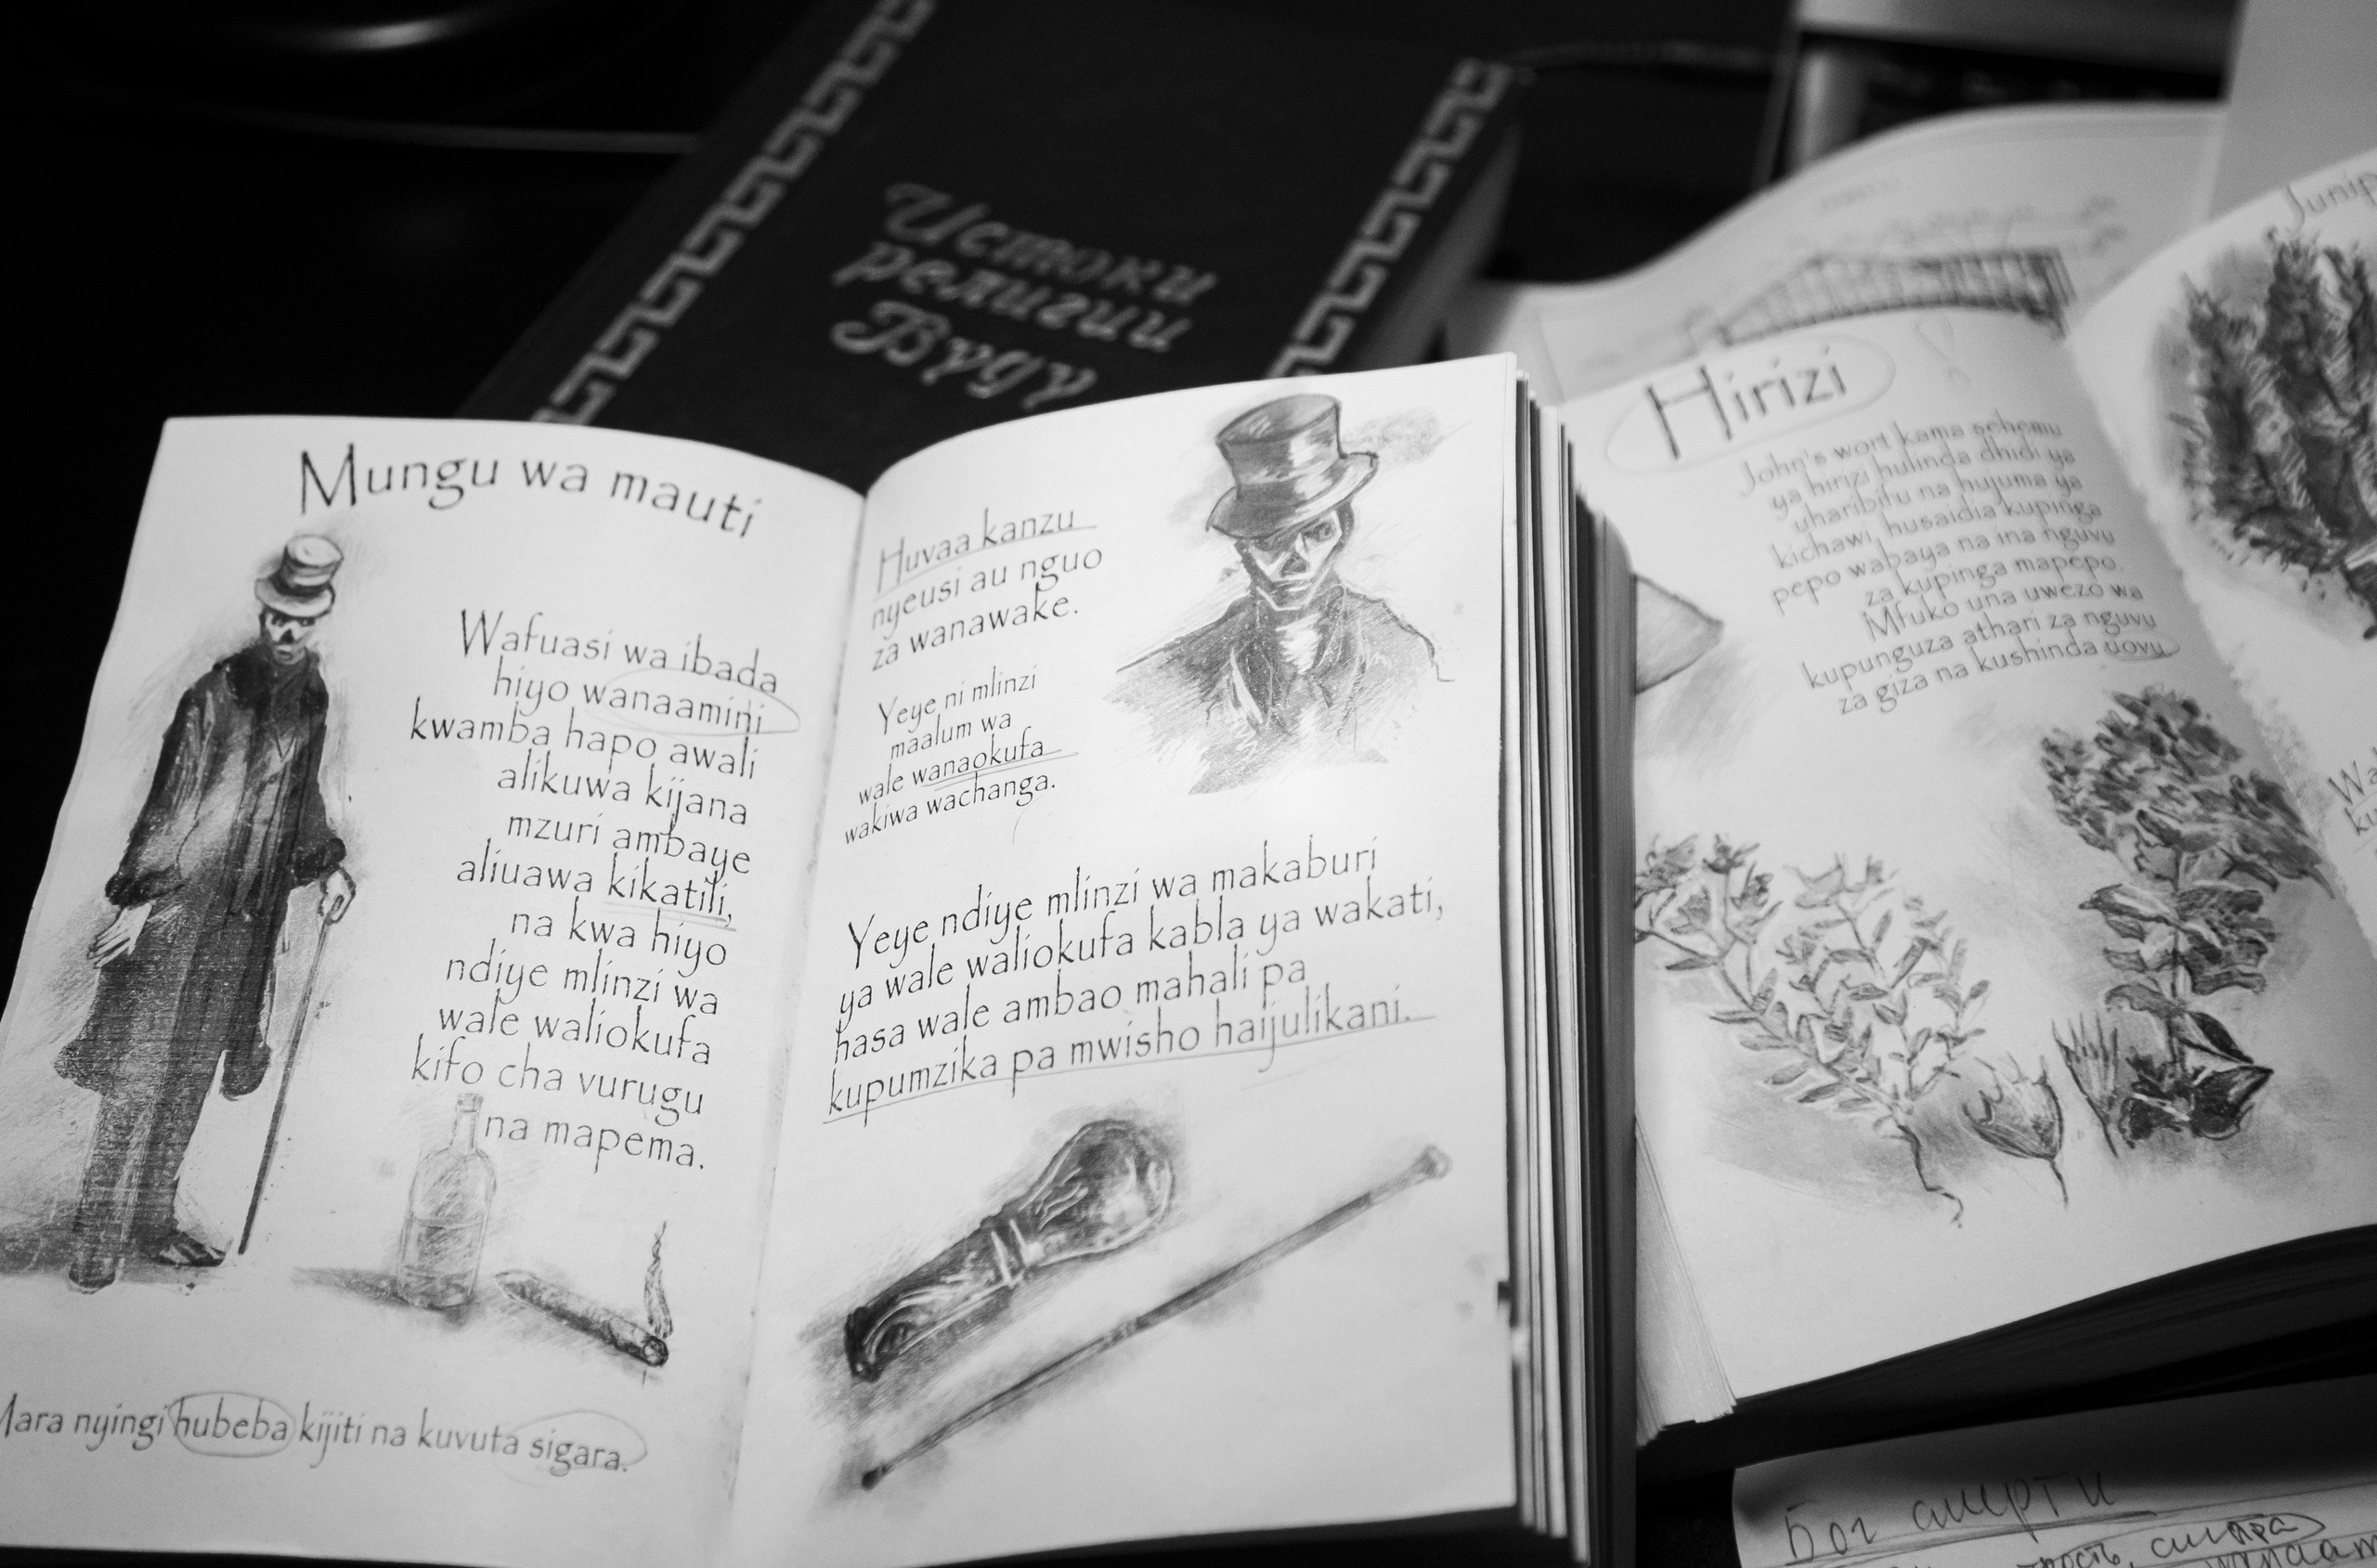 Истоки
религии
Вуду
Mungu wa mauti
Wafuasi wa ibada
hiyo wanaamini
kwamba hapo awali
alikuwa kijana
mzuri ambaye
aliuawa kikatili,
na kwa hiyo
ndiye mlinzi wa
wale waliokufa
kifo cha vurugu
na mapema.
nyingi hubeba kijiti na kuvuta sigara.
Huvaa kanzu
nyeusi au nguo
za wanawake.
Yeye ni mlinzi
maalum wa
wale wanaokufa
wakiwa wachanga.
Yeye ndiye mlinzi wa makaburi
ya wale waliokufa kabla ya wakati,
hasa wale ambao mahali pa
kupumzika pa mwisho haijulikani.
Hirizi
John's wort kama sehemu
ya hirizi hulinda dhidi ya
uharibifu na hujuma ya
kichawi, husaidia kupinga
pepo wabaya na ina nguvu
za kupinga mapepo.
Mfuko una uwezo wa
kupunguza athari za nguvu
za giza na kushinda uovu
Junip
Бог смерти
трость, сигара